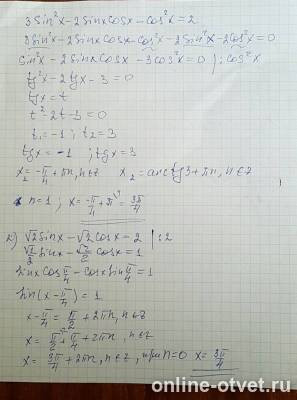 3sin²x-2sinxcosx-cos²x=2
3sin²x-2sinxcosx-cos²x-2sin²x-2cos²x=0
sin²x-2sinxcosx-3cos²x=0 |:cos²x
tg²x-2tgx-3=0
tgx=t
t²-2t-3=0
t₁=-1 ; t₂=3
tgx=-1 ; tgx=3
x₂=-π/4+πn, n∈z x₂=arctg3+πn, n∈z
n=1; x=-π/4+π=3π/4
2) √2sinx-√2cosx=2 |:2
√2/2 sinx-√2/2 cosx=1
sinxcosπ/4-cosxsinπ/4=1
sin(x-π/4)=1
x-π/4=π/2+2πn, n∈z
x=π/2+π/4+2πn, n∈z
x=3π/4+2πn, n∈z, при n=0 x=3π/4
online-otvet.ru